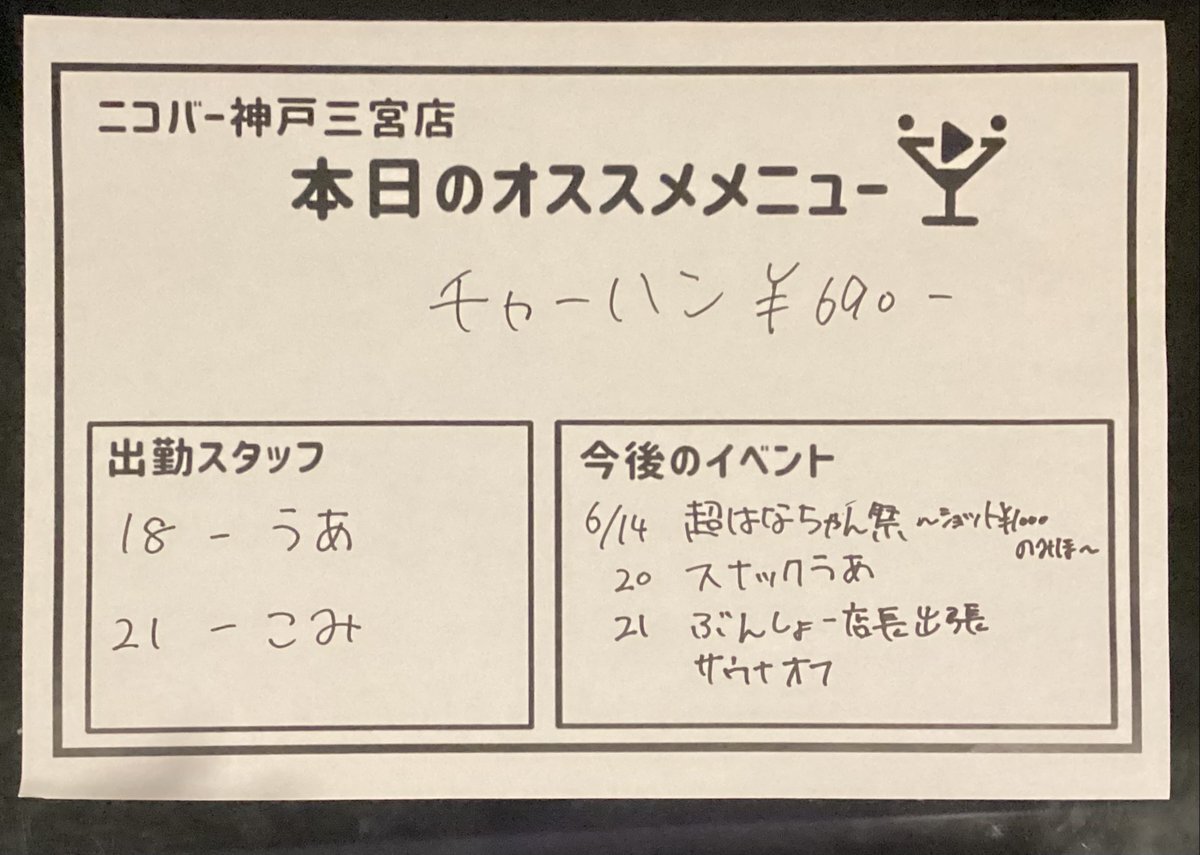 ニコバー神戸三宮店
本日のオススメメニュー
チャーハン ¥690-
出勤スタッフ
18 - うあ
21 - こみ
今後のイベント
6/14 超はなちゃん祭 ～ショット¥1000
のみほ～
20 スナックうあ
21 ぶんしょー店長出張
サウナオフ